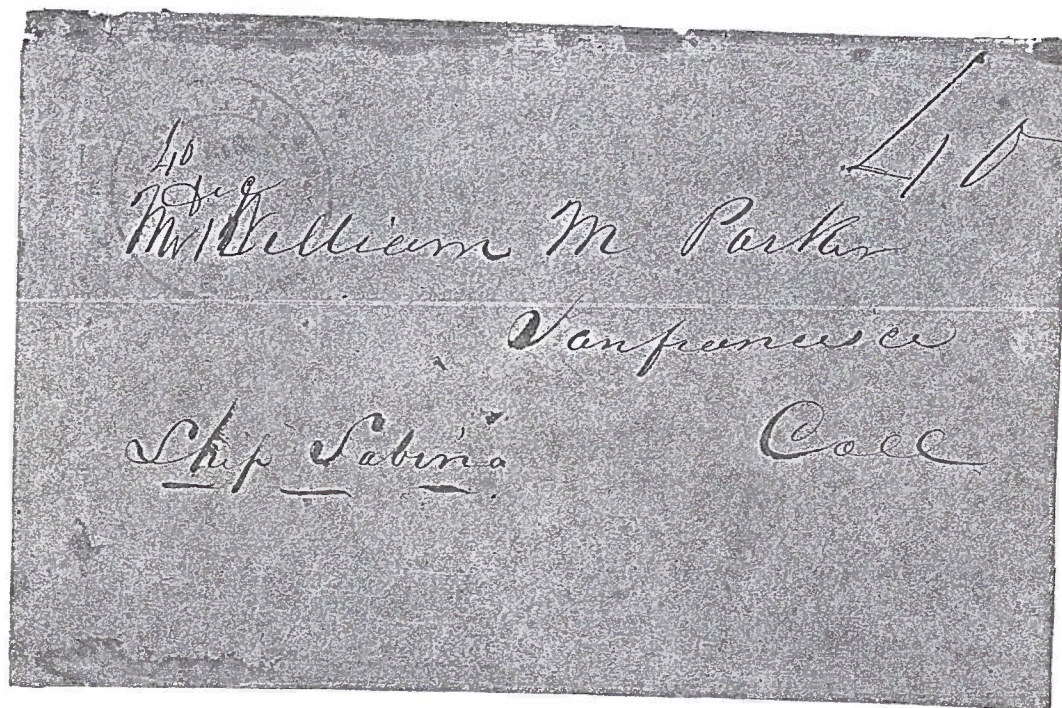 40
40
Mr William M Parker
Sanfrancisco
Ship Sabina
Call